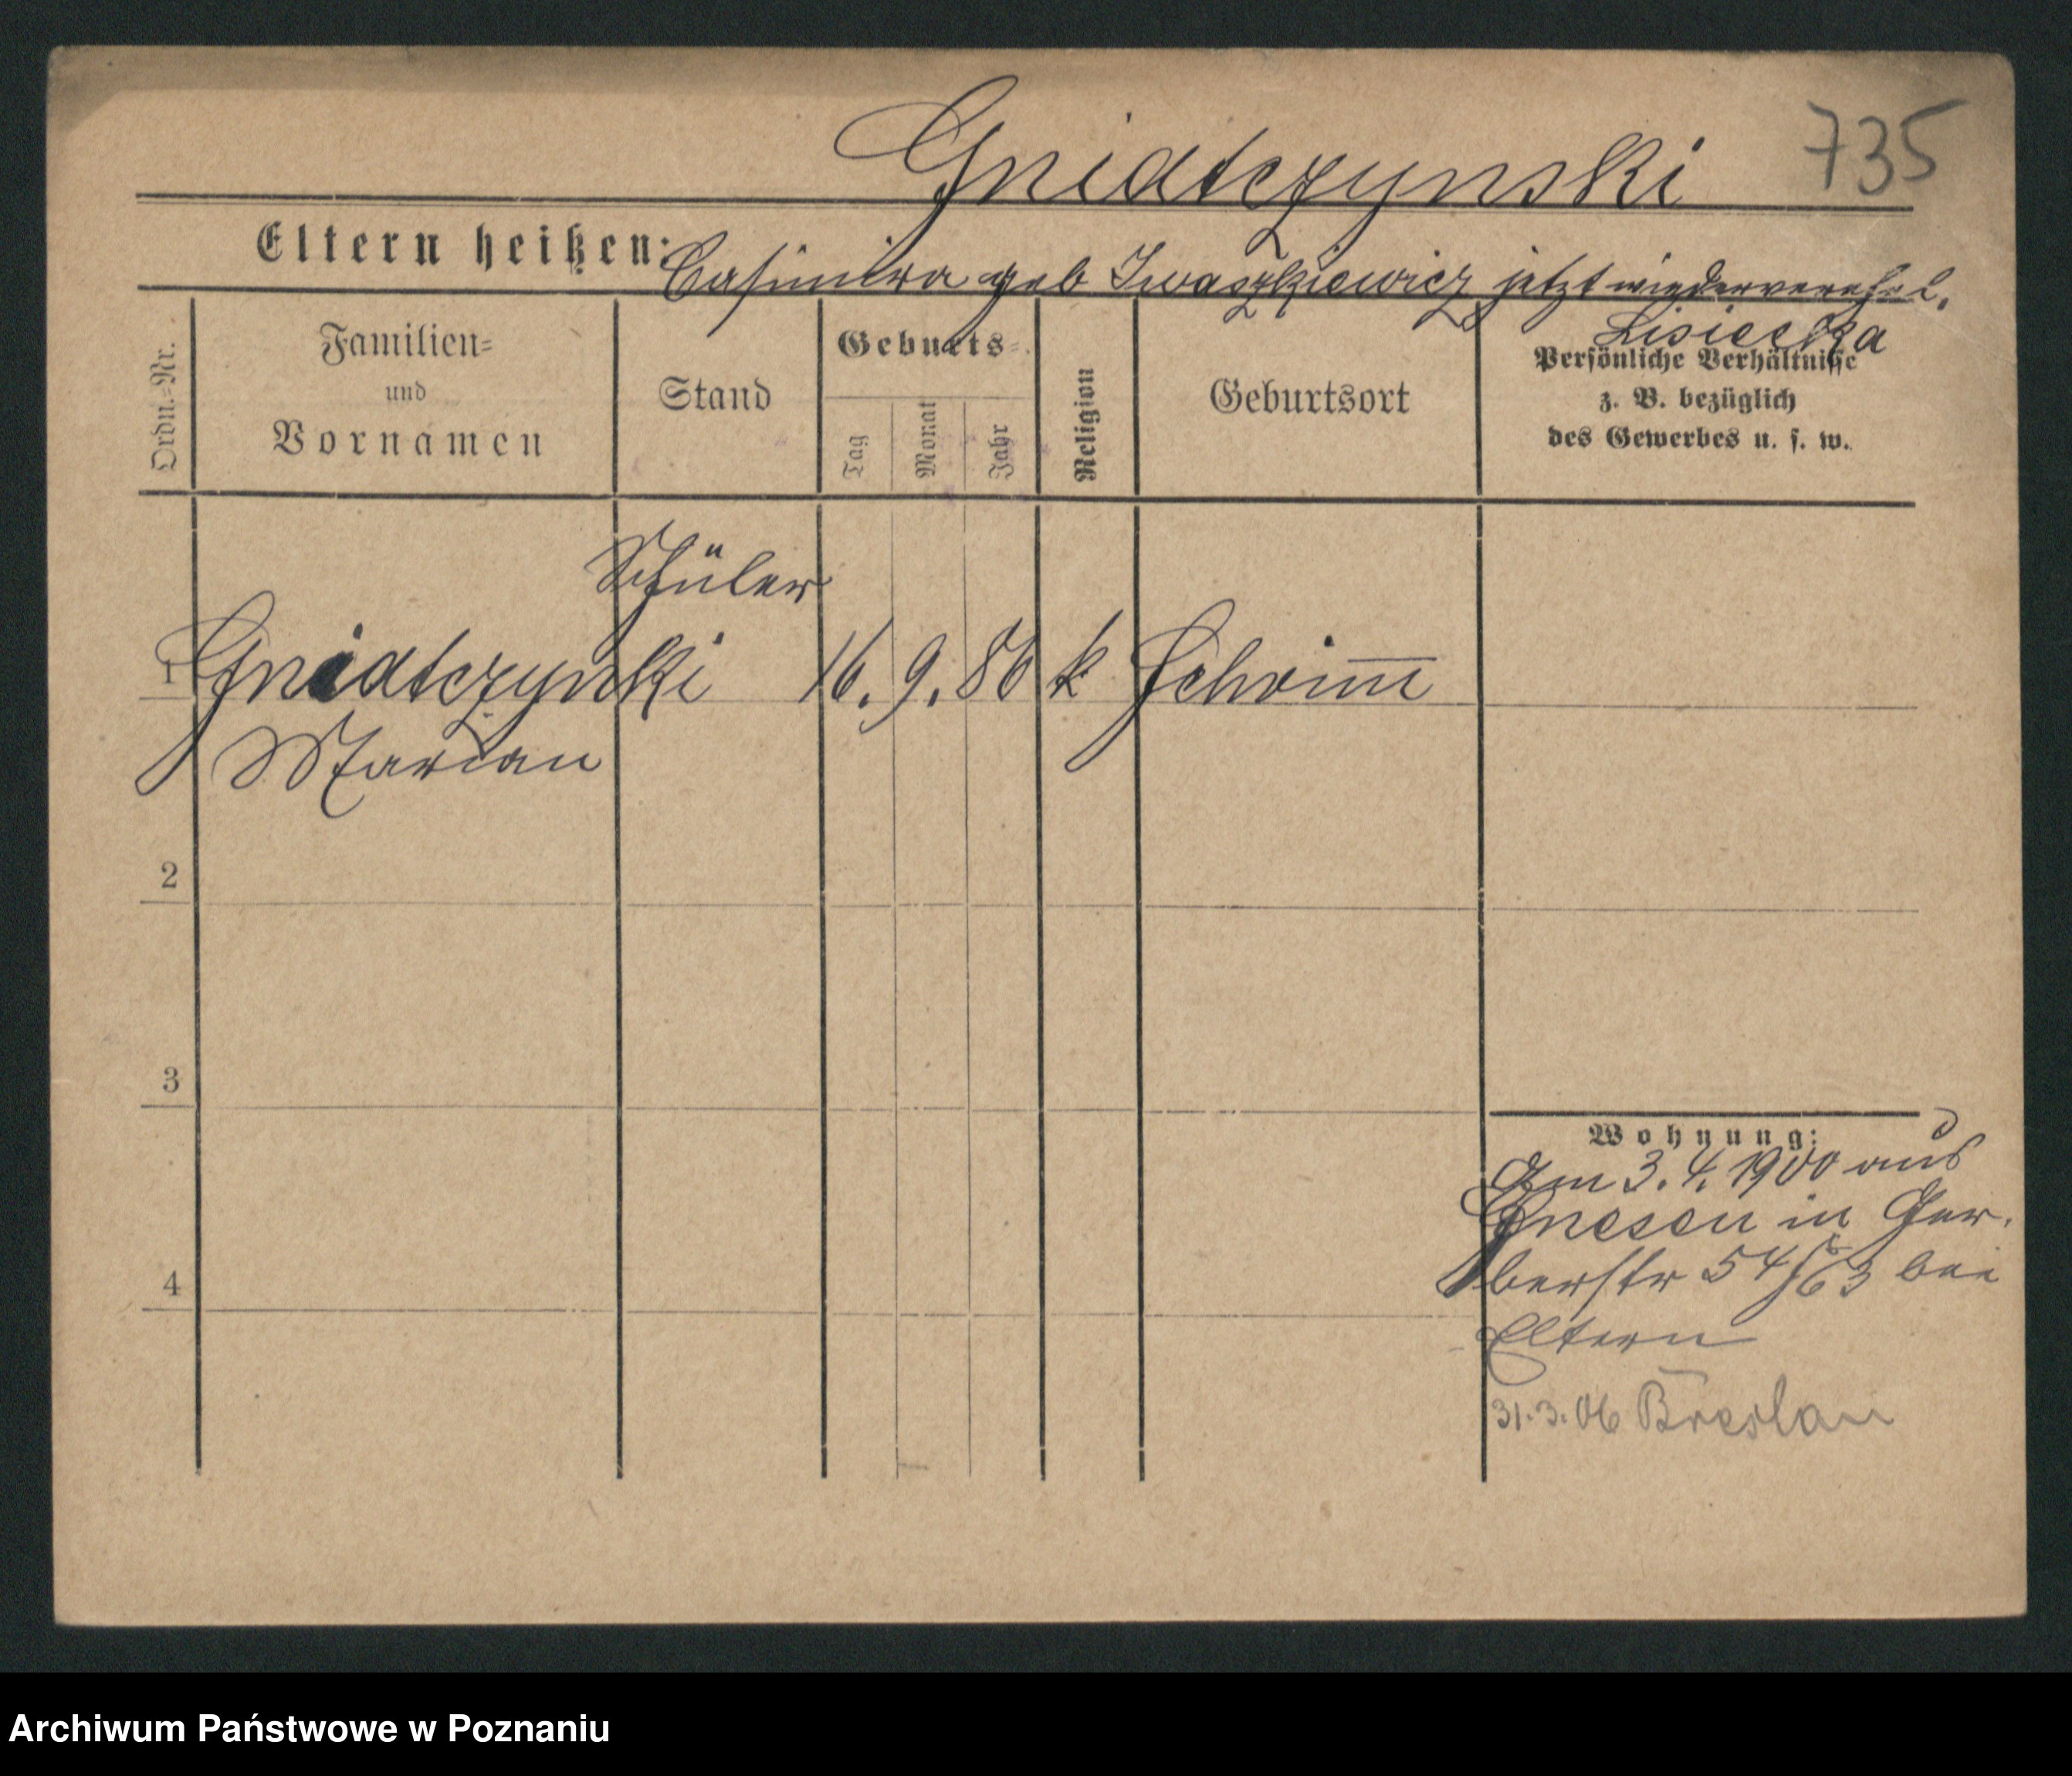 Gniatczynski 735
Eltern heißen: Casimira geb Iwaszkiewicz jetzt wiederverehel.
Lisiecka
Ordn.-Nr.
Familien-
und
Vornamen
Stand
Geburts-
Tag
Monat
Jahr
Religion
Geburtsort
Persönliche Verhältnisse
z. B. bezüglich
des Gewerbes u. s. w.
Schüler
1 Gniatczynski 16. 9. 86 k Schrimm
Marian
2
3
4
Wohnung:
Am 3. 4. 1900 aus
Gnesen in Ger.
berstr 54/63 bei
Eltern
31.3.06 Breslau
Archiwum Państwowe w Poznaniu